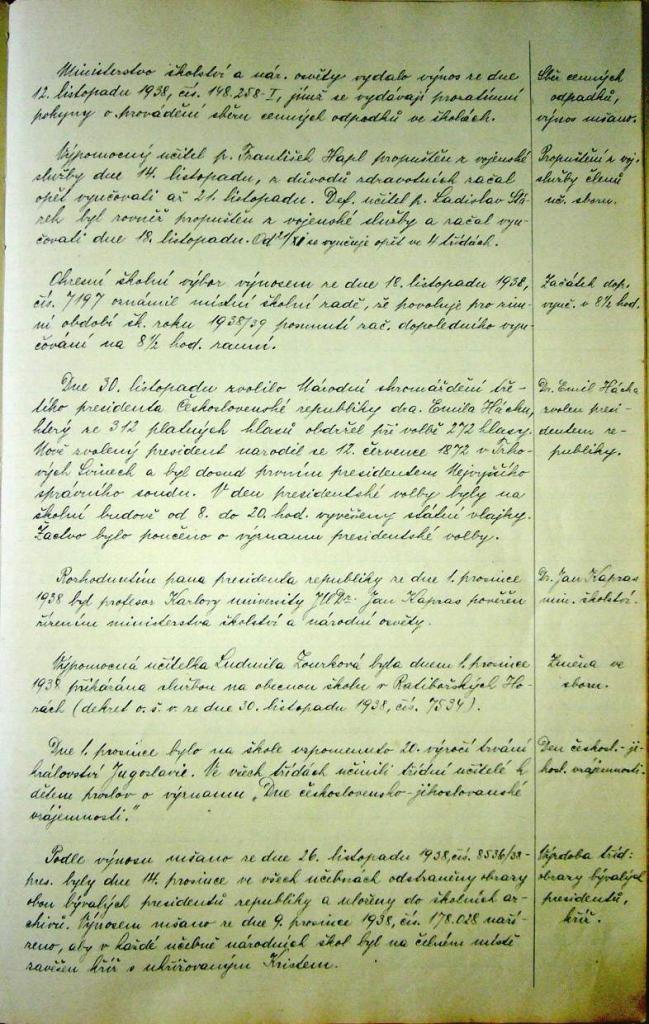 Ministerstvo školství a nár. osvěty vydalo výnos ze dne
12. listopadu 1938, čís. 148.258-I, jímž se vydávají prozatímní
pokyny o provádění sběru cenných odpadků ve školách.
Sběr cenných
odpadků,
výnos mšano.
Výpomocný učitel p. František Hapl propuštěn z vojenské
služby dne 14. listopadu, z důvodů zdravotních začal
opět vyučovati až 21. listopadu. Def. učitel p. Ladislav
byl rovněž propuštěn z vojenské služby a začal vyu-
čovati dne 18. listopadu. Od se vyučuje opět ve 4 třídách.
Propuštění z voj.
služby členů
uč. sboru.
Okresní školní výbor výnosem ze dne 18. listopadu 1938,
čís. 7197 oznámil místní školní radě, že povoluje pro zim-
ní období šk. roku 1938/39 posunutí zač. dopoledního vyu-
čování na 8½ hod. ranní.
Začátek dop.
vyuč. v 8½ hod.
Dne 30. listopadu zvolilo Národní shromáždění tře-
tího presidenta Československé republiky dra. Emila Háchu,
který ze 312 platných hlasů obdržel při volbě 272 hlasy.
Nově zvolený president narodil se 12. července 1872 v Trho-
vých Svinech a byl dosud prvním presidentem Nejvyššího
správního soudu. V den presidentské volby byly na
školní budově od 8. do 20. hod. vyvěšeny státní vlajky.
Žactvo bylo poučeno o významu presidentské volby.
Dr. Emil Hácha
zvolen presi-
dentem re-
publiky.
Rozhodnutím pana presidenta republiky ze dne 1. prosince
1938 byl profesor Karlovy university JUDr. Jan Kapras pověřen
řízením ministerstva školství a národní osvěty.
Dr. Jan Kapras
min. školství.
Výpomocná učitelka Ludmila Zourková byla dnem 1. prosince
1938 přikázána službou na obecnou školu v Ratibořských Ho-
rách (dekret o. š. v. ze dne 30. listopadu 1938, čís. 7534).
Změna ve
sboru.
Dne 1. prosince bylo na škole vzpomenuto 20. výročí trvání
království Jugoslavie. Ve všech třídách učinili třídní učitelé k
dětem proslov o významu „Dne československo-jihoslovanské
vzájemnosti."
Den českosl.-ji-
hosl. vzájemnosti.
Podle výnosu mšano ze dne 26. listopadu 1938, čís. 8536/38-
pres. byly dne 14. prosince ve všech učebnách odstraněny obrazy
obou bývalých presidentů republiky a uloženy do školních ar-
chivů. Výnosem mšano ze dne 9. prosince 1938, čís. 178.028 naří-
zeno, aby v každé učebně národních škol byl na čelném místě
zavěšen kříž s ukřižovaným Kristem.
Výzdoba tříd:
obrazy bývalých
presidentů,
kříž.